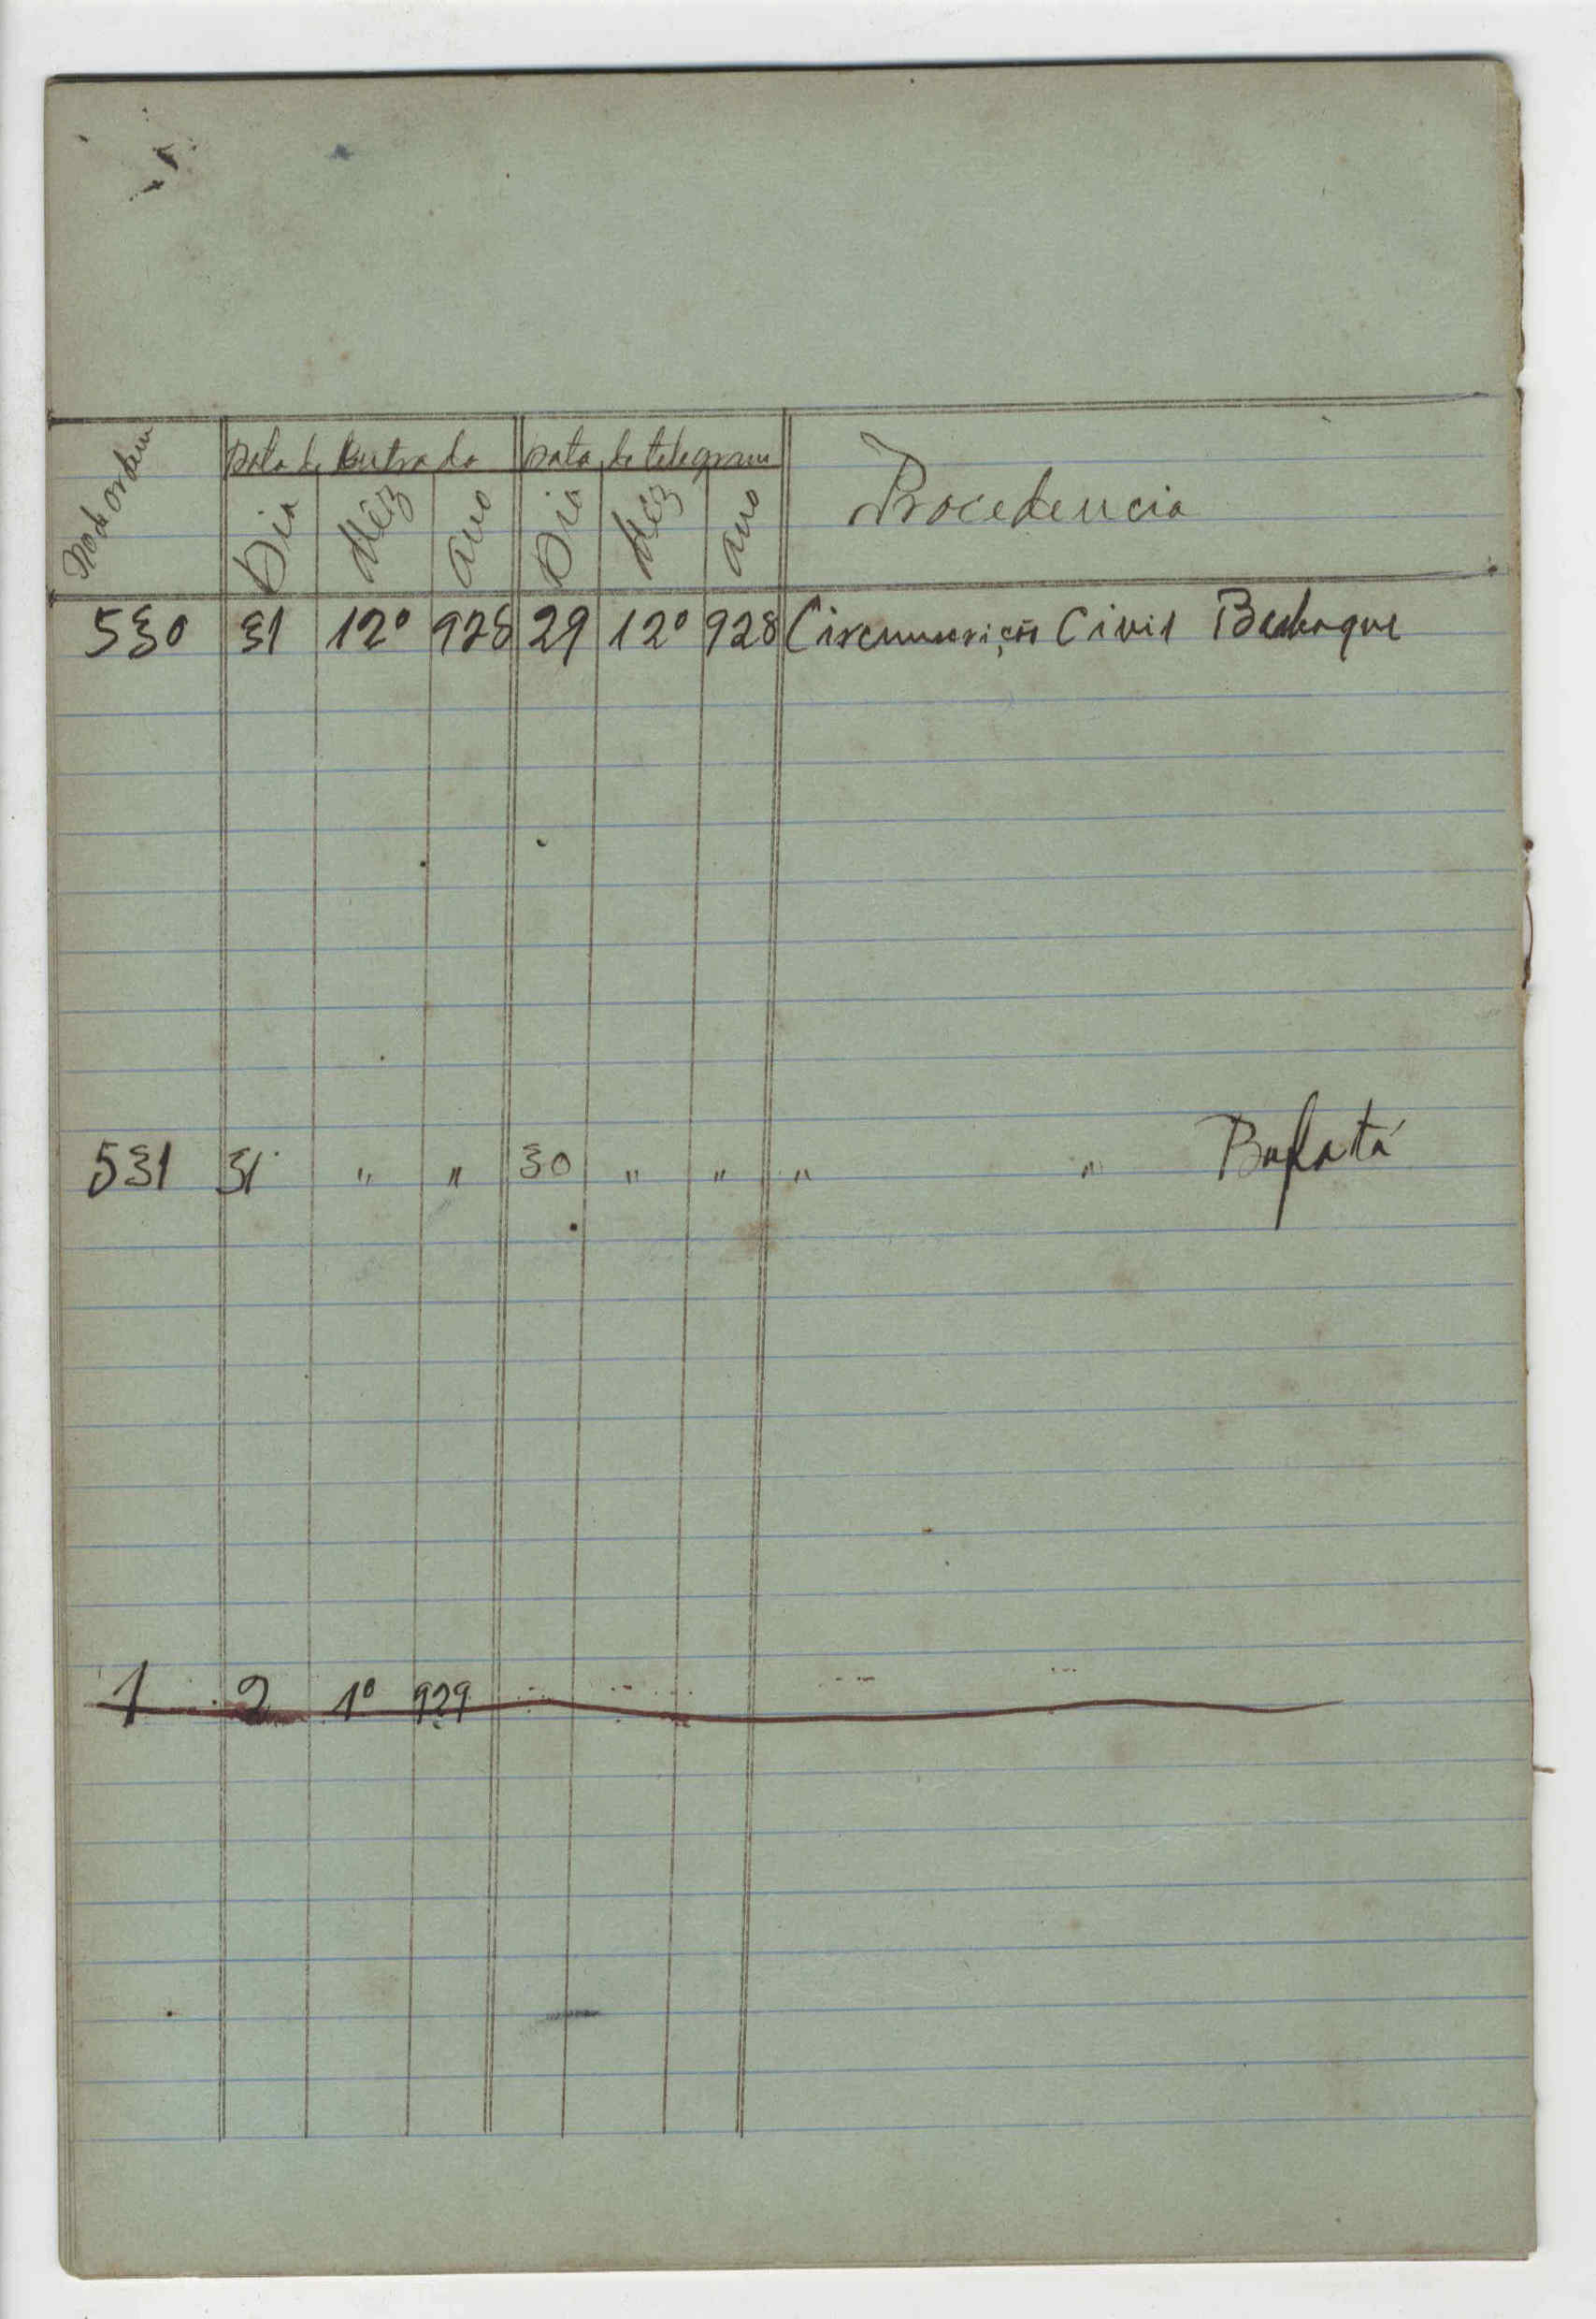 No de ordem Data de Entrada Data de telegrama Procedencia
Dia Mêz Ano Dia Mêz Ano
530 31 12º 928 29 12º 928 Circumscrição Civil
531 31 " " 30 " " " " Bafatá
1 2 1º 929